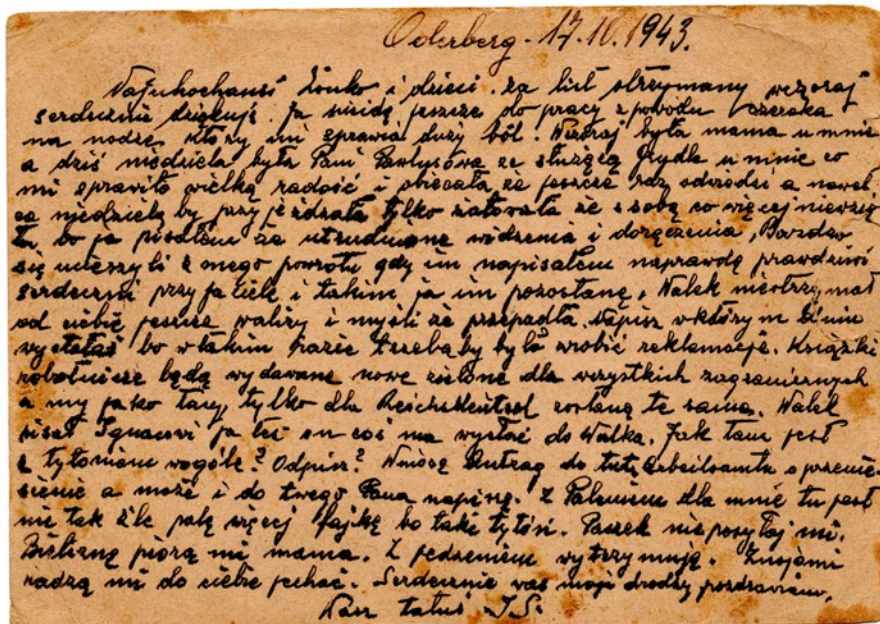 Oderberg - 17.10.1943.
Najukochańsi Żonko i dzieci. Za list otrzymany wczoraj
serdecznie dziękuję. Ja nieidę jeszcze do pracy z powodu czeraka
na nodze, który mi sprawia duży ból. Wczoraj była mama u mnie
a dziś niedziela była Pani Pawlusówa ze służącą Frydla u mnie co
mi sprawiło wielką radość i obiecała że jeszcze raz odwiedzi a nawet
co niedzielę by przyjeżdzała tylko żałowała że z sobą co więcej niewzię
ła, bo ja pisałem że utrudnione widzenia i doręczenia, Bardzo
się ucieszyli z mego powrotu gdy im napisałem naprawdę prawdziwi
serdeczni przyjaciele i takim ja im pozostanę, Walek nieotrzymał
od ciebie jeszcze walizy i myśli że przepadła. Napisz w którym dniu
wysłałaś bo w takim razie trzebaby było zrobić reklamacje. Książki
robotnicze będą wydawane nowe zielone dla wszystkich zagranicznych
a my jako tacy, tylko dla Reichsdeutsch zostaną te same. Walek
pisał Ignacowi ja też on coś ma wysłać do Walka. Jak tam jest
z tytoniem wogóle? Odpisz? Wniosę Antrag do tut. Arbeitsamtu o przenie-
sienie a może i do twego Pana napiszę. Z Paleniem dla mnie tu jest
nie tak źle palę więcej fajkę bo taki tytoń. Paczek nie posyłaj mi.
Bieliznę piorą mi mama. Z jedzeniem wytrzymuję. Znajomi
radzą mi do ciebie jechać. Serdecznie was moji drodzy pozdrawiam.
Wasz tatuś J.S.